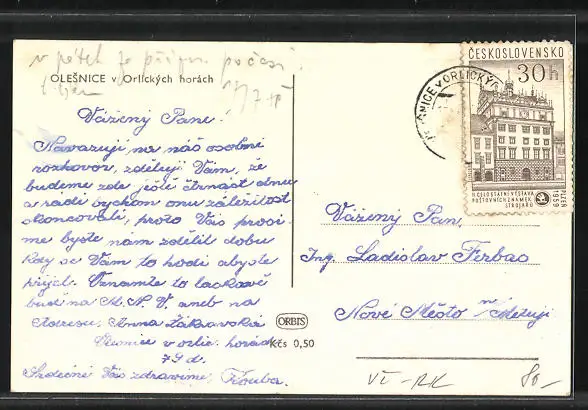 v pátek za přízn. počasí.
OLEŠNICE v Orlických horách
17/7
Vážený Pane!
Navazuji na náš osobní
rozhovor, zděluji Vám, že
budeme zde ještě čtrnáct dnu
a rádi bychom onu záležitost
skoncovali, proto Vás prosí-
me byste nám zdělil dobu
kdy se Vám to hodí abyste
přijel. Oznamte to laskavě
buď na M.N.V. aneb na
Adresu: Anna Žákravská
Olešnice v orlic. horách
79 d.
Srdečně Vás zdravíme, Kouba.
ORBIS
Kčs 0,50
ČESKOSLOVENSKO
30 h
II. CELOSTÁTNÍ VÝSTAVA
POŠTOVNÍCH ZNÁMEK
STROJAŘŮ
PLZEŇ
1959
NICE V ORLICKÝ
Vážený Pan,
Ing. Ladislav Ferbac
Nové Město n/Metují
80-